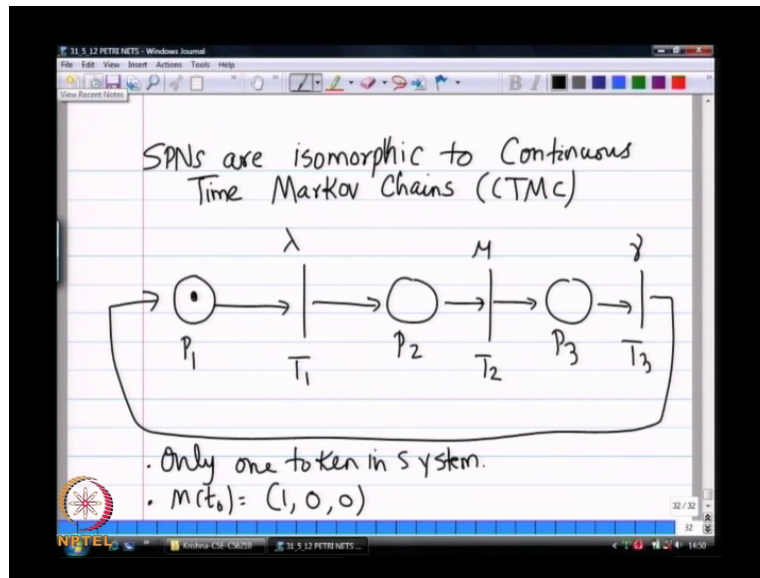 31_5_12 PETRI NETS - Windows Journal
File Edit View Insert Actions Tools Help
View Recent Notes
SPNs are isomorphic to Continuous
Time Markov Chains (CTMC)
λ μ γ
P1 T1 P2 T2 P3 T3
. Only one token in system.
. M(t0) = (1, 0, 0)
32 / 32
32
NPTEL
Krishna-CSE-CS6210 31_5_12 PETRI NETS ...
14:50